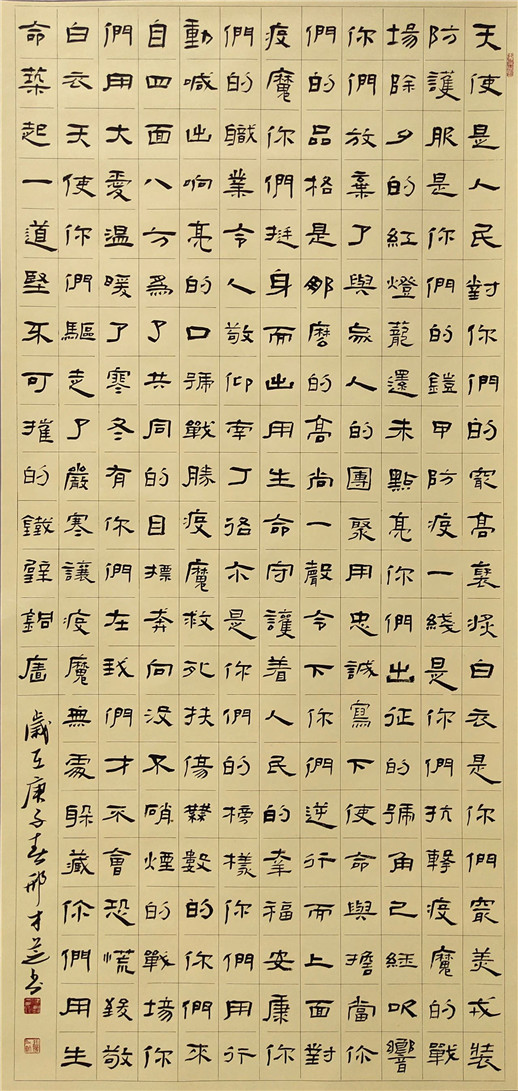 天使是人民對你們的最高褒獎白衣是你們最美戎裝
防護服是你們的鎧甲防疫一綫是你們抗擊疫魔的戰
場除夕的紅燈籠還未點亮你們出征的號角已經吹響
你們放棄了與家人的團聚用忠誠寫下使命與擔當你
們的品格是那麽的高尚一聲令下你們逆行而上面對
疫魔你們挺身而出用生命守護着人民的幸福安康你
們的職業令人敬仰南丁格尔是你們的榜樣你們用行
動喊出响亮的口號戰勝疫魔救死扶傷難數的你們來
自四面八方爲了共同的目標奔向没不硝煙的戰場你
們用大愛温暖了寒冬有你們在我們才不會恐慌致敬
白衣天使你們驅走了嚴寒讓疫魔無處躲藏你們用生
命築起一道堅不可摧的鐵壁銅墻
歲在庚子春邢才芝書